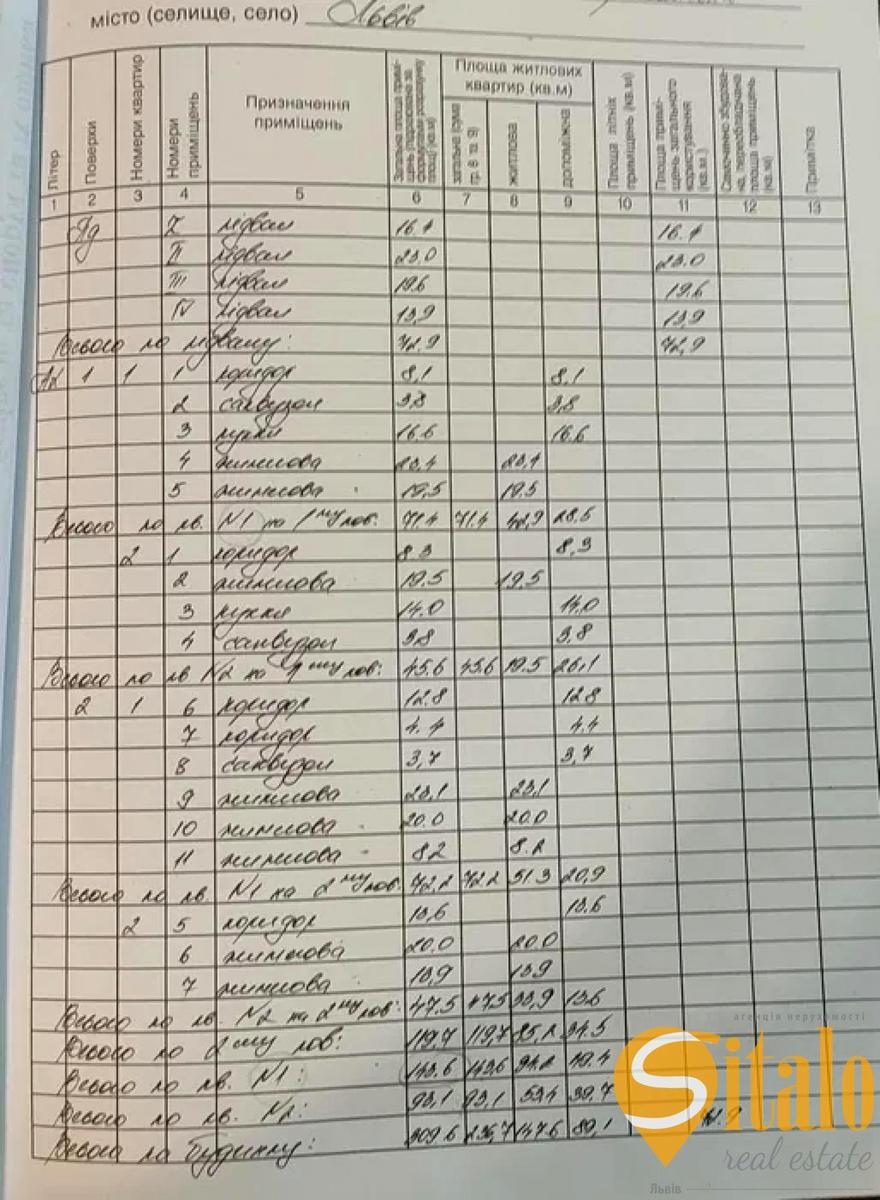 місто (селище, село) Львів
Літер
Поверхи
Номери квартир
Номери приміщень
Призначення приміщень
Загальна площа приміщень (підрахована за формулами розрахунку площ) (кв.м)
Площа житлових квартир (кв.м)
загальна (сума гр. 8 та 9)
житлова
допоміжна
Площа літніх приміщень (кв.м)
Площа приміщень загального користування (кв.м.)
площа приміщень (кв.м)
Примітка
1 2 3 4 5 6 7 8 9 10 11 12 13
Пд I підвал 16.4 16.4
II підвал 23.0 23.0
III підвал 19.6 19.6
IV підвал 13,9 13,9
Всього по підвалу: 72,9 72,9
1 1 1 коридор 8,1 8,1
2 санвузол 3,8 3,8
3 кухня 16.6 16.6
4 житлова 23,4 23,4
5 житлова 19,5 19,5
Всього по кв. N1 на 1му пов: 71.4 71.4 42,9 28.5
2 1 коридор 8.3 8,3
2 житлова 19.5 19,5
3 кухня 14.0 14,0
4 санвузол 3,8 3,8
Всього по кв N2 на 1му пов: 45.6 45.6 19.5 26,1
2 1 6 коридор 12.8 12.8
7 коридор 4.4 4.4
8 санвузол 3,7 3,7
9 житлова 23,1 23,1
10 житлова 20.0 20.0
11 житлова 8.2 8.2
Всього по кв. N1 на 2му пов: 72,2 72.2 51.3 20,9
2 5 коридор 13,6 13.6
6 житлова 20.0 20.0
7 житлова 13,9 13,9
Всього по кв. N2 на 2му пов: 47.5 47.5 33,9 13.6
Всього по 2му пов: 119,7 119,7 85,2 34.5
Всього по кв. N1: 143.6 143,6 94.2 49.4
Всього по кв. N2: 93,1 93,1 53.4 39.7
Всього по будинку: 309.6 236,7 147.6 89,1 72.9
агенція нерухомості
Sitalo
real estate
Львів